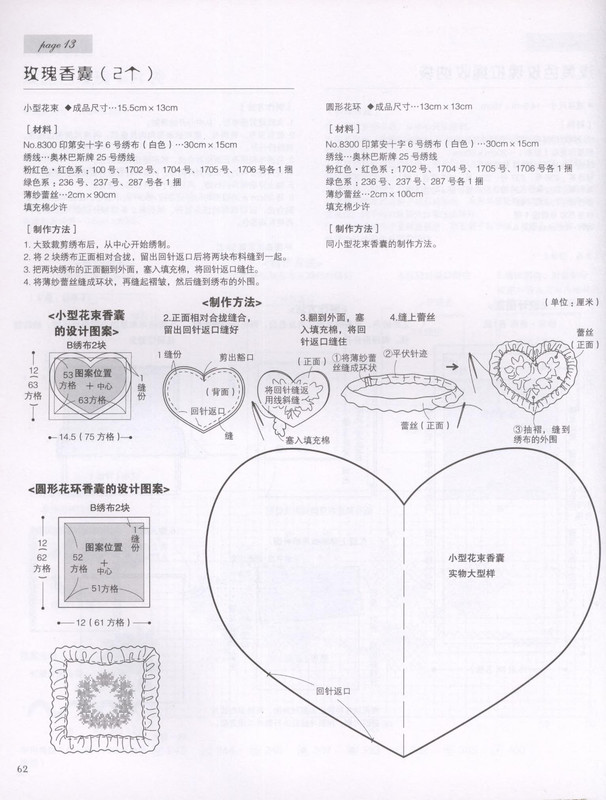 page 13
玫瑰香囊（2个）
小型花束 ◆成品尺寸…15.5cm×13cm
[ 材料 ]
No.8300 印第安十字 6 号绣布（白色）…30cm×15cm
绣线…奥林巴斯牌 25 号绣线
粉红色・红色系；100 号、1702 号、1704 号、1705 号、1706 号各 1 捆
绿色系；236 号、237 号、287 号各 1 捆
薄纱蕾丝…2cm×90cm
填充棉少许
[ 制作方法 ]
1. 大致裁剪绣布后，从中心开始绣制。
2. 将 2 块绣布正面相对合拢，留出回针返口后将两块布料缝到一起。
3. 把两块绣布的正面翻到外面，塞入填充棉，将回针返口缝住。
4. 将薄纱蕾丝缝成环状，再缝起褶皱，然后缝到绣布的外围。
圆形花环 ◆成品尺寸…13cm×13cm
[ 材料 ]
No.8300 印第安十字 6 号绣布（白色）…30cm×15cm
绣线…奥林巴斯牌 25 号绣线
粉红色・红色系；1702 号、1704 号、1705 号、1706 号各 1 捆
绿色系；236 号、237 号、287 号各 1 捆
薄纱蕾丝…2cm×100cm
填充棉少许
[ 制作方法 ]
同小型花束香囊的制作方法。
<制作方法>
（单位：厘米）
<小型花束香囊
的设计图案>
B绣布2块
12
（63
方格）
53
方格
图案位置
中心
63方格
1
缝
份
14.5（75 方格）
2.正面相对合拢缝合，
留出回针返口缝好
1 缝份
剪出豁口
（背面）
回针返口
缝
3.翻到外面，塞
入填充棉，将回
针返口缝住
（正面）
将回针缝返
用线斜缝
塞入填充棉
4.缝上蕾丝
①将薄纱蕾
丝缝成环状
②平伏针迹
蕾丝（正面）
蕾丝
（正面）
③抽褶，缝到
绣布的外围
<圆形花环香囊的设计图案>
B绣布2块
12
（62
方格）
图案位置
52
方格
中心
51方格
1
缝
份
12（61 方格）
小型花束香囊
实物大型样
回针返口
62